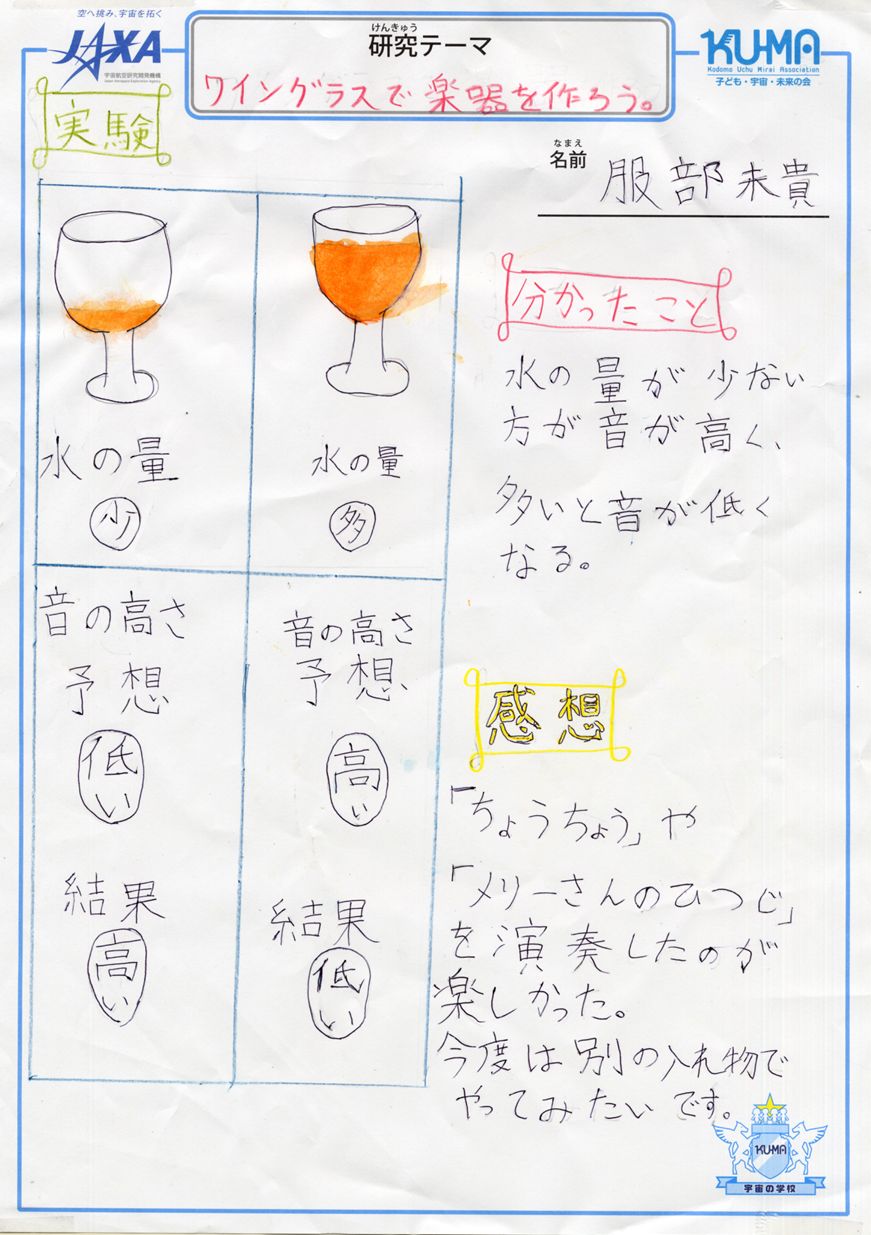 空へ挑み、宇宙を拓く
JAXA
宇宙航空研究開発機構
Japan Aerospace Exploration Agency
けんきゅう
研究テーマ
ワイングラスで楽器を作ろう。
KU-MA
Kodomo Uchu Mirai Association
子ども・宇宙・未来の会
実験
なまえ
名前
服部未貴
水の量
少
音の高さ
予想
低い
結果
高い
水の量
多
音の高さ
予想
高い
結果
低い
分かったこと
水の量が少ない
方が音が高く、
多いと音が低く
なる。
感想
「ちょうちょう」や
「メリーさんのひつじ」
を演奏したのが
楽しかった。
今度は別の入れ物で
やってみたいです。
KU-MA
宇宙の学校